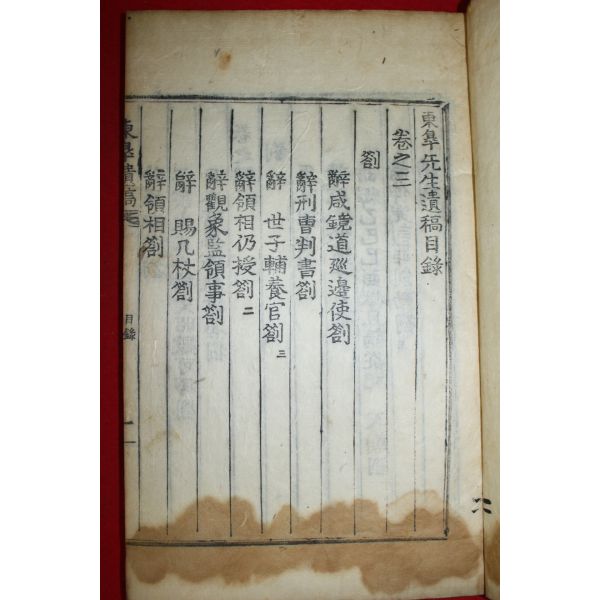 東皐先生遺稿目錄
卷之三
劄
辭咸鏡道巡邊使劄
辭刑曹判書劄
辭 世子輔養官劄 三
辭領相仍授劄 二
辭觀象監領事劄
辭 賜几杖劄
辭領相劄
東皐遺稿
目錄
一